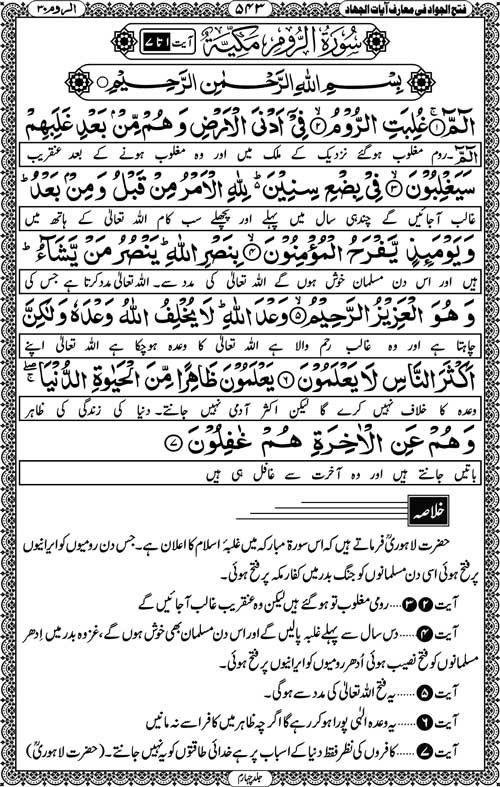 فتح الجواد فی معارف آیات الجهاد ۵۴۳ الروم ۳۰
سُوْرَةُ الرُّوْمِ مَكِّيَّةٌ آیت ۱ تا ۷
بِسْمِ اللّٰهِ الرَّحْمٰنِ الرَّحِیْمِ
الٓمّٓ ۚ﴿۱﴾ غُلِبَتِ الرُّوْمُ ۙ﴿۲﴾ فِیْۤ اَدْنَی الْاَرْضِ وَ هُمْ مِّنْۢ بَعْدِ غَلَبِهِمْ
الٓمّٓ۔ روم مغلوب ہوگئے نزدیک کے ملک میں اور وہ مغلوب ہونے کے بعد عنقریب
سَیَغْلِبُوْنَ ۙ﴿۳﴾ فِیْ بِضْعِ سِنِیْنَ ؕ لِلّٰهِ الْاَمْرُ مِنْ قَبْلُ وَ مِنْۢ بَعْدُ ؕ
غالب آجائیں گے چندہی سال میں پہلے اور پچھلے سب کام اللہ تعالیٰ کے ہاتھ میں
وَ یَوْمَىِٕذٍ یَّفْرَحُ الْمُؤْمِنُوْنَ ۙ﴿۴﴾ بِنَصْرِ اللّٰهِ ؕ یَنْصُرُ مَنْ یَّشَآءُ ؕ
ہیں اور اس دن مسلمان خوش ہوں گے اللہ تعالیٰ کی مدد سے۔ اللہ تعالیٰ مددکرتا ہے جس کی
وَ هُوَ الْعَزِیْزُ الرَّحِیْمُ ۙ﴿۵﴾ وَعْدَ اللّٰهِ ؕ لَا یُخْلِفُ اللّٰهُ وَعْدَهٗ وَ لٰكِنَّ
چاہتا ہے اور وہ غالب رحم والا ہے اللہ تعالیٰ کا وعدہ ہوچکا ہے اللہ تعالیٰ اپنے
اَكْثَرَ النَّاسِ لَا یَعْلَمُوْنَ ﴿۶﴾ یَعْلَمُوْنَ ظَاهِرًا مِّنَ الْحَیٰوةِ الدُّنْیَا ۖۚ
وعدہ کا خلاف نہیں کرے گا لیکن اکثر آدمی نہیں جانتے۔ دنیا کی زندگی کی ظاہر
وَ هُمْ عَنِ الْاٰخِرَةِ هُمْ غٰفِلُوْنَ ﴿۷﴾
باتیں جانتے ہیں اور وہ آخرت سے غافل ہی ہیں
خلاصہ
حضرت لاہوریؒ فرماتے ہیں کہ اس سورۃ مبارکہ میں غلبۂ اسلام کا اعلان ہے۔ جس دن رومیوں کو ایرانیوں
پر فتح ہوئی اسی دن مسلمانوں کو جنگ بدر میں کفار مکہ پر فتح ہوئی۔
آیت ۲ ۳ ...... رومی مغلوب تو ہو گئے ہیں لیکن وہ عنقریب غالب آجائیں گے
آیت ۴ ...... دس سال سے پہلے غلبہ پالیں گے اور اس دن مسلمان بھی خوش ہوں گے، غزوہ بدر میں اِدھر
مسلمانوں کو فتح نصیب ہوئی اُدھر رومیوں کو ایرانیوں پر فتح ہوئی۔
آیت ۵ ...... یہ فتح اللہ تعالیٰ کی مدد سے ہوگی۔
آیت ۶ ...... یہ وعدہ الٰہی پورا ہو کر رہے گا اگرچہ ظاہر میں کافر اسے نہ مانیں
آیت ۷ ...... کافروں کی نظر فقط دنیا کے اسباب پر ہے خدائی طاقتوں کو یہ نہیں جانتے۔ (حضرت لاہوریؒ)
جلد چہارم